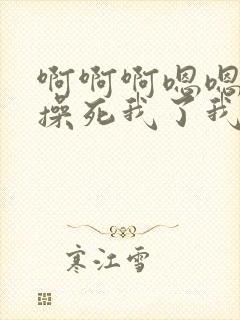 啊啊啊嗯嗯
操死我了我
寒江雪